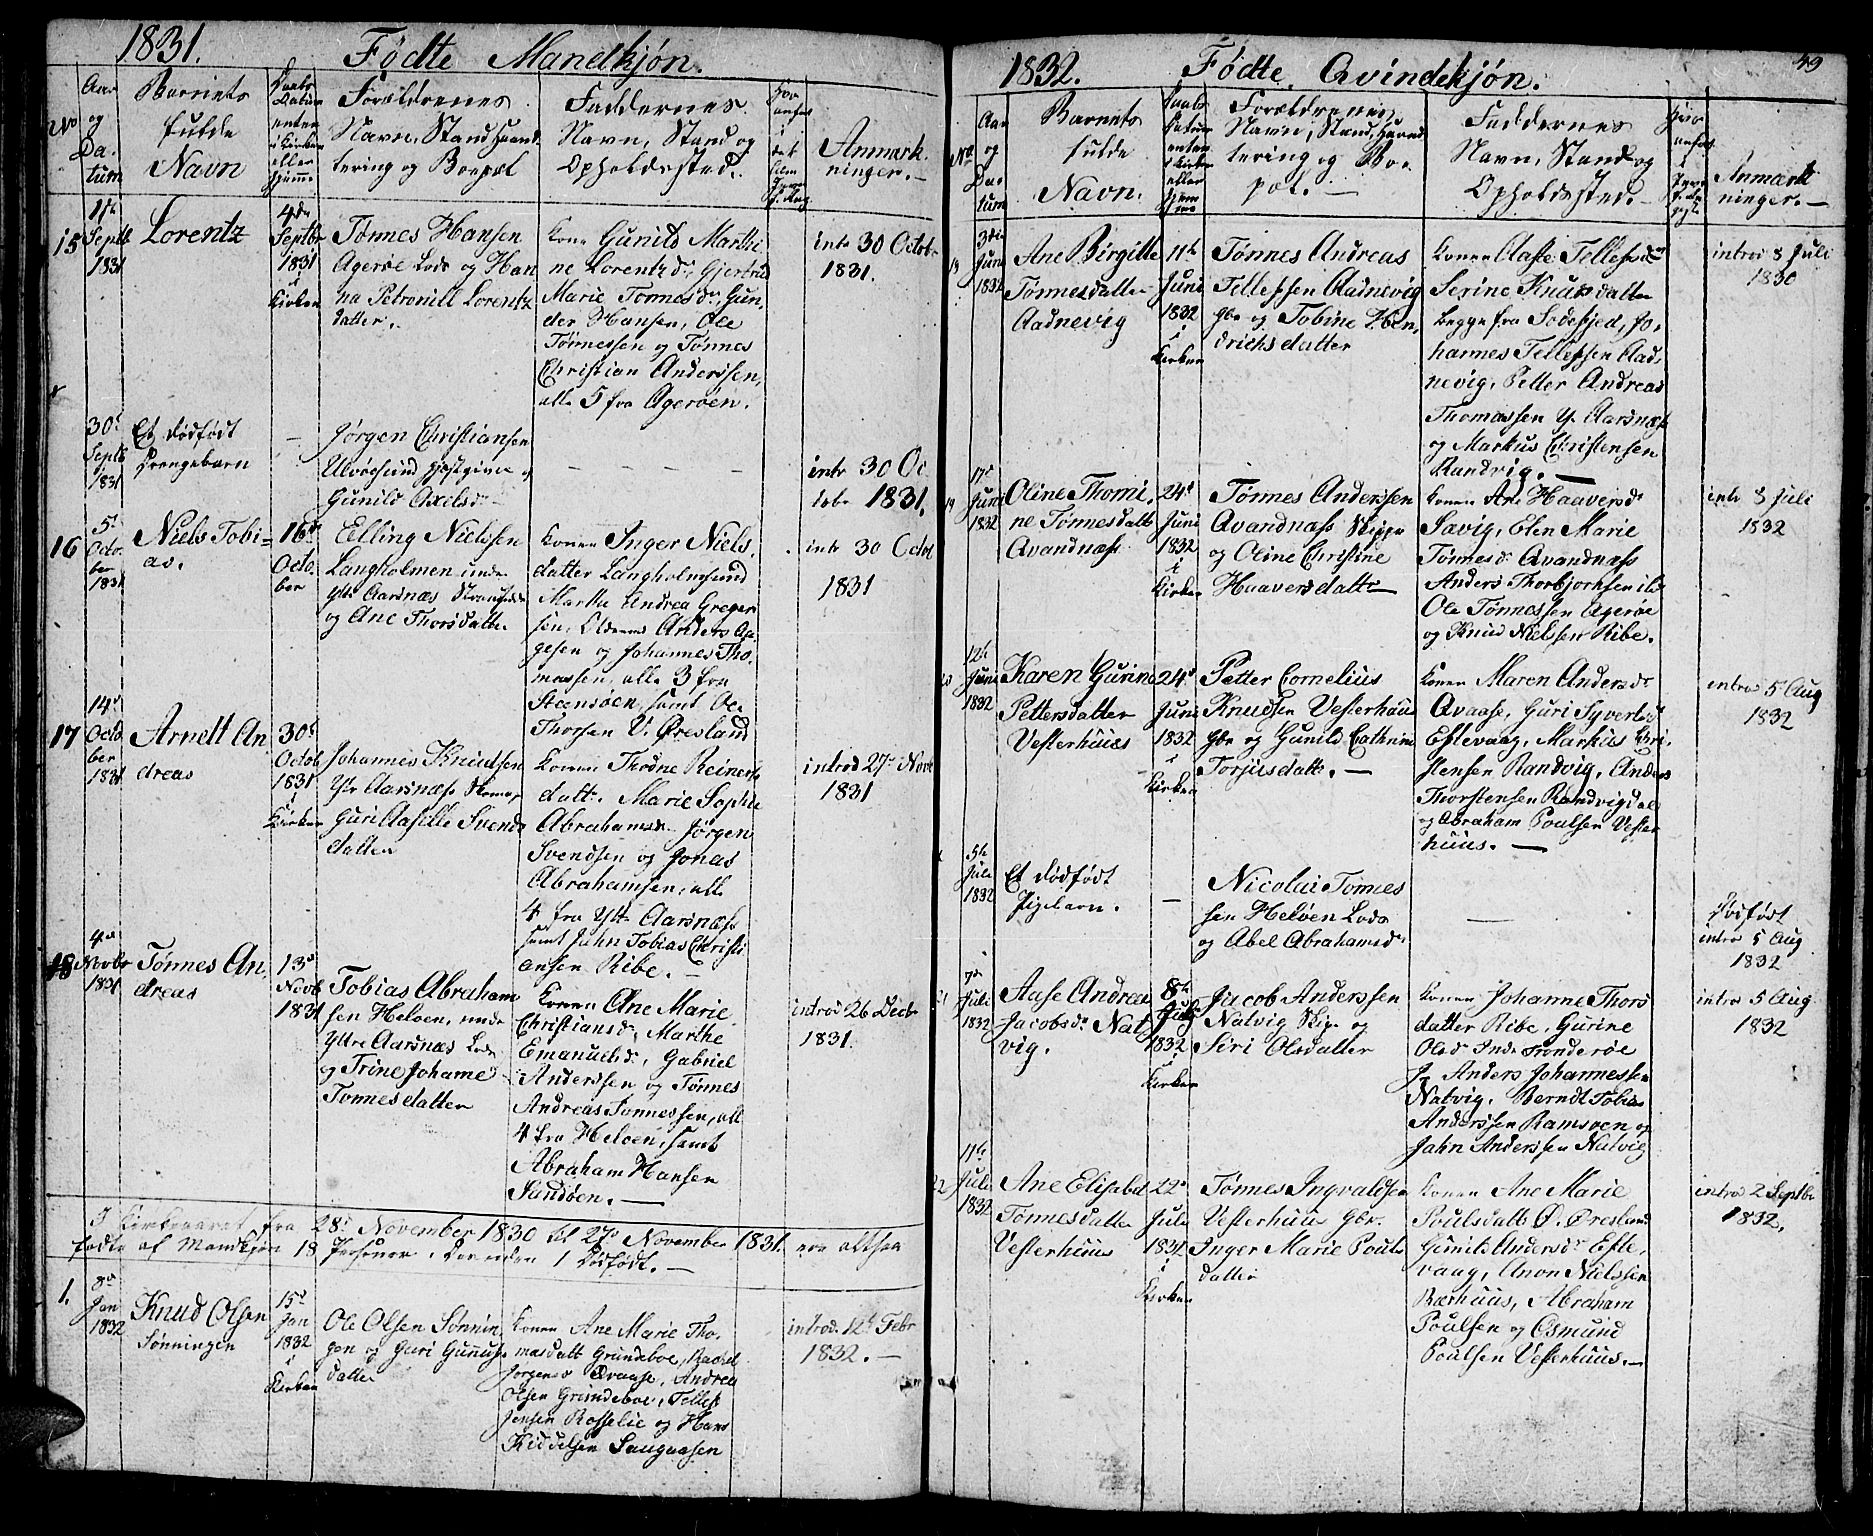 1831. Fødte Mandkjøn.
No
Aar
og
Da-
tum
Barnets
fulde
Navn
Daabs
Datum
enten
i Kirken
eller
hjemme
Forældrenes
Navn, Stand, Haand
tering og Bopæl
Faddernes
Navn, Stand og
Opholdssted.
Anmærk
ninger.
15
Septb
1831
Lorentz
4de
Septbr
1831
i
Kirken
Tønnes Hansen
Agerøe Lods og Han
na Petronill Lorentz
datter.
Kone Gunild Marthi
ne Lorentzdr, Gjertrud
Marie Tønnesdr, Gun
der Hansen, Ole
Tønnessen og Tønnes
Christian Anderssen,
alle 5 fra Agerøen.
intr 30 Octob
1831.
30
Septb
1831
Et dødfødt
Drengebarn
—
Jørgen Christiansen
Ulvøesund Gjestgiver og
Gunild Axelsdr
— — — —
intr 30 Oc
tobr 1831.
16
5
Octo
ber
1831
Niels Tobi=
as.
16
Octo
ber
Elling Nielsen
Langholmen under
Ytr Aarsnæs Strandsidder
og Ane Thorsdatter
Konen Inger Niels
datter Langholmsund
Marthe Andrea Greger
sen, Anders Aa
gesen og Johannes Tho
massen, alle 3 fra
Steensøen, samt Ole
Thorsen V. Øresland
intr 30 Octob
1831
17
14
Octo
ber
1831
Arnelt An
dreas
30
Octob
1831
i
Kirken
Johannes Knudsen
Ytr Aarsnæs
Guri Aasille Svends
datter
Konen Thodne Reinerts
datter. Marie Sophie
Abrahamsdr Jørgen
Svendsen og Jonas
Abrahamsen, alle
4 fra Ytr Aarsnæs
samt Jahn Tobias Christi
ansen Ribe.
introd 27 Novbr
1831
18
4
Novbr
1831
Tønnes An
dreas
13
Novb
1831
Tobias Abraham
sen Heløen, under
Yttre Aarsnæs Lods
og Trine Johanne
Tønnesdatter
Konen Ane Marie
Christiansdr, Marthe
Emanuelsdr, Gabriel
Anderssen og Tønnes
Andreas Tønnessen, alle
4 fra Heløen, samt
Abraham Hansen
Sandøen.
introd 26 Decbr
1831.
I Kirkeaaret fra 28 November 1830 til 27 November 1831. ere altsaa
fødte af Mandkjøn 18 Personer. Desuden 1 Dødfødt.
1.
8
Jan
1832
Knud Olsen
Sønningen
15
Jan
1832
i
Kirken
Ole Olsen Sønnin
gen og Guri Gunufs
datter
Konen Ane Marie Tho
masdatt Grundeboe, Rachel
Jørgensdr Qvaase, Andrea
Olsen Grundeboe, Tellef
Jensen Rosselie og Hans
Kiddelsen Saugaasen
introd. 12 Febr
1832.
1832. Fødte Qvindekjøn. 49
No
Aar
og
Da
tum
Barnets
fulde
Navn.
Daabs
Datum
enten
i Kirken
eller
hjem
me
Forældrenes
Navn, Stand, Haand
tering og Bo=
pæl.
Faddernes
Navn, Stand og
Opholdssted.
Anmærk
ninger.
18
3die
Juni
1832
Ane Birgitte
Tønnesdatter
Aadnevig
11
Juni
1832
i
Kirken
Tønnes Andreas
Tellefsen Aadnevig
Gbr og Tobine Hen
drichsdatter
Konen Aase Tellefsdr
Serine Knudsdatter
begge fra Sodefjed, Jo,
hannes Tellefsen Aad,
nevig, Petter Andreas
Thomassen Y. Aarsnæs
og Markus Christensen
Randvig.
introd 8 Juli
1830
19
17
Juni
1832
Oline Thomi,
ne Tønnesdatt
Qvandnæs
24
Juni
1832
i
Kirken
Tønnes Anderssen
Qvandnæs Skipper
og Oline Christine
Haaversdatter
Konen Ane Haaversdr
Savig, Elen Marie
Tønnesdr Qvandnæs
Anders Thorbjornsen ibd
Ole Tønnessen Agerøe
og Knud Nielsen Ribe.
intr 8 Juli
1832
20
12
Juni
1832
Karen Gurine
Pettersdatter
Vesterhuus
24
Juni
1832
i
Kirken
Petter Cornelius
Knudsen Vesterhuus
Gbr og Gunild Cathrine
Torjusdatter.
Konen Maren Andersdr
Qvaase, Guri Syvertsdr
Eftevaag, Markus Chri
stensen Randvig, Anders
Thorstensen Randvigdal
og Abraham Poulsen Vester
huus.
introd 5 Aug
1832
5
Juli
1832
Et dødfødt
Pigebarn.
—
Nicolai Tønnes
sen Heløen Lods
og Abel Abrahamsdr
—
Dødfødt
introd 5 Aug
1832
21
7
Juli
1832
Aase Andrea
Jacobsdr Nat
vig.
8
Juli
1832
i
Kirken
Jacob Anderssen
Natvig Skipr og
Siri Olsdatter
Konen Johanne Thors
datter Ribe, Gurine
Olsdr Inde Tronderøe
J. Anders Johannessen
Natvig, Berndt Tobias
Anderssen Ramsøen og
Jahn Anderssen Natvig
introd 5 Aug
1832
22
11
Juli
1832
Ane Elisabet
Tønnesdatter
Vesterhuus
22
Juli
1832
i
Kirken
Tønnes Ingvaldsen
Vesterhuus Gbr.
Inger Marie Pouls
datter
Konen Ane Marie
Poulsdatter Ø. Øresland
Gunild Andersdr Efte,
vaag, Anon Nielssen
Bærhuus, Abraham
Poulsen og Osmund
Poulsen Vesterhuus.
introd 2 Septbr
1832.